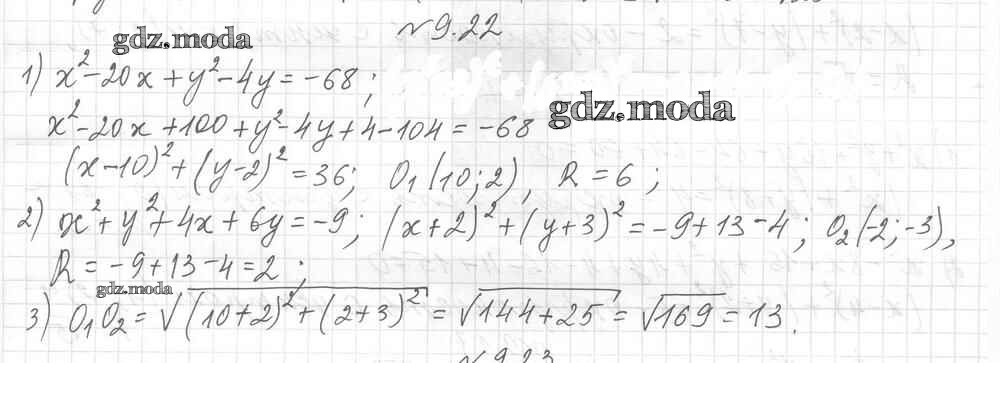 №9.22
gdz.moda
1) x²-20x+y²-4y=-68;
gdz.moda
x²-20x+100+y²-4y+4-104=-68
(x-10)²+(y-2)²=36; O₁(10;2), R=6;
2) x²+y²+4x+6y=-9; (x+2)²+(y+3)²=-9+13-4; O₂(-2;-3),
R=-9+13-4=2;
gdz.moda
3) O₁O₂=√((10+2)²+(2+3)²)=√144+25=√169=13.
№9.23